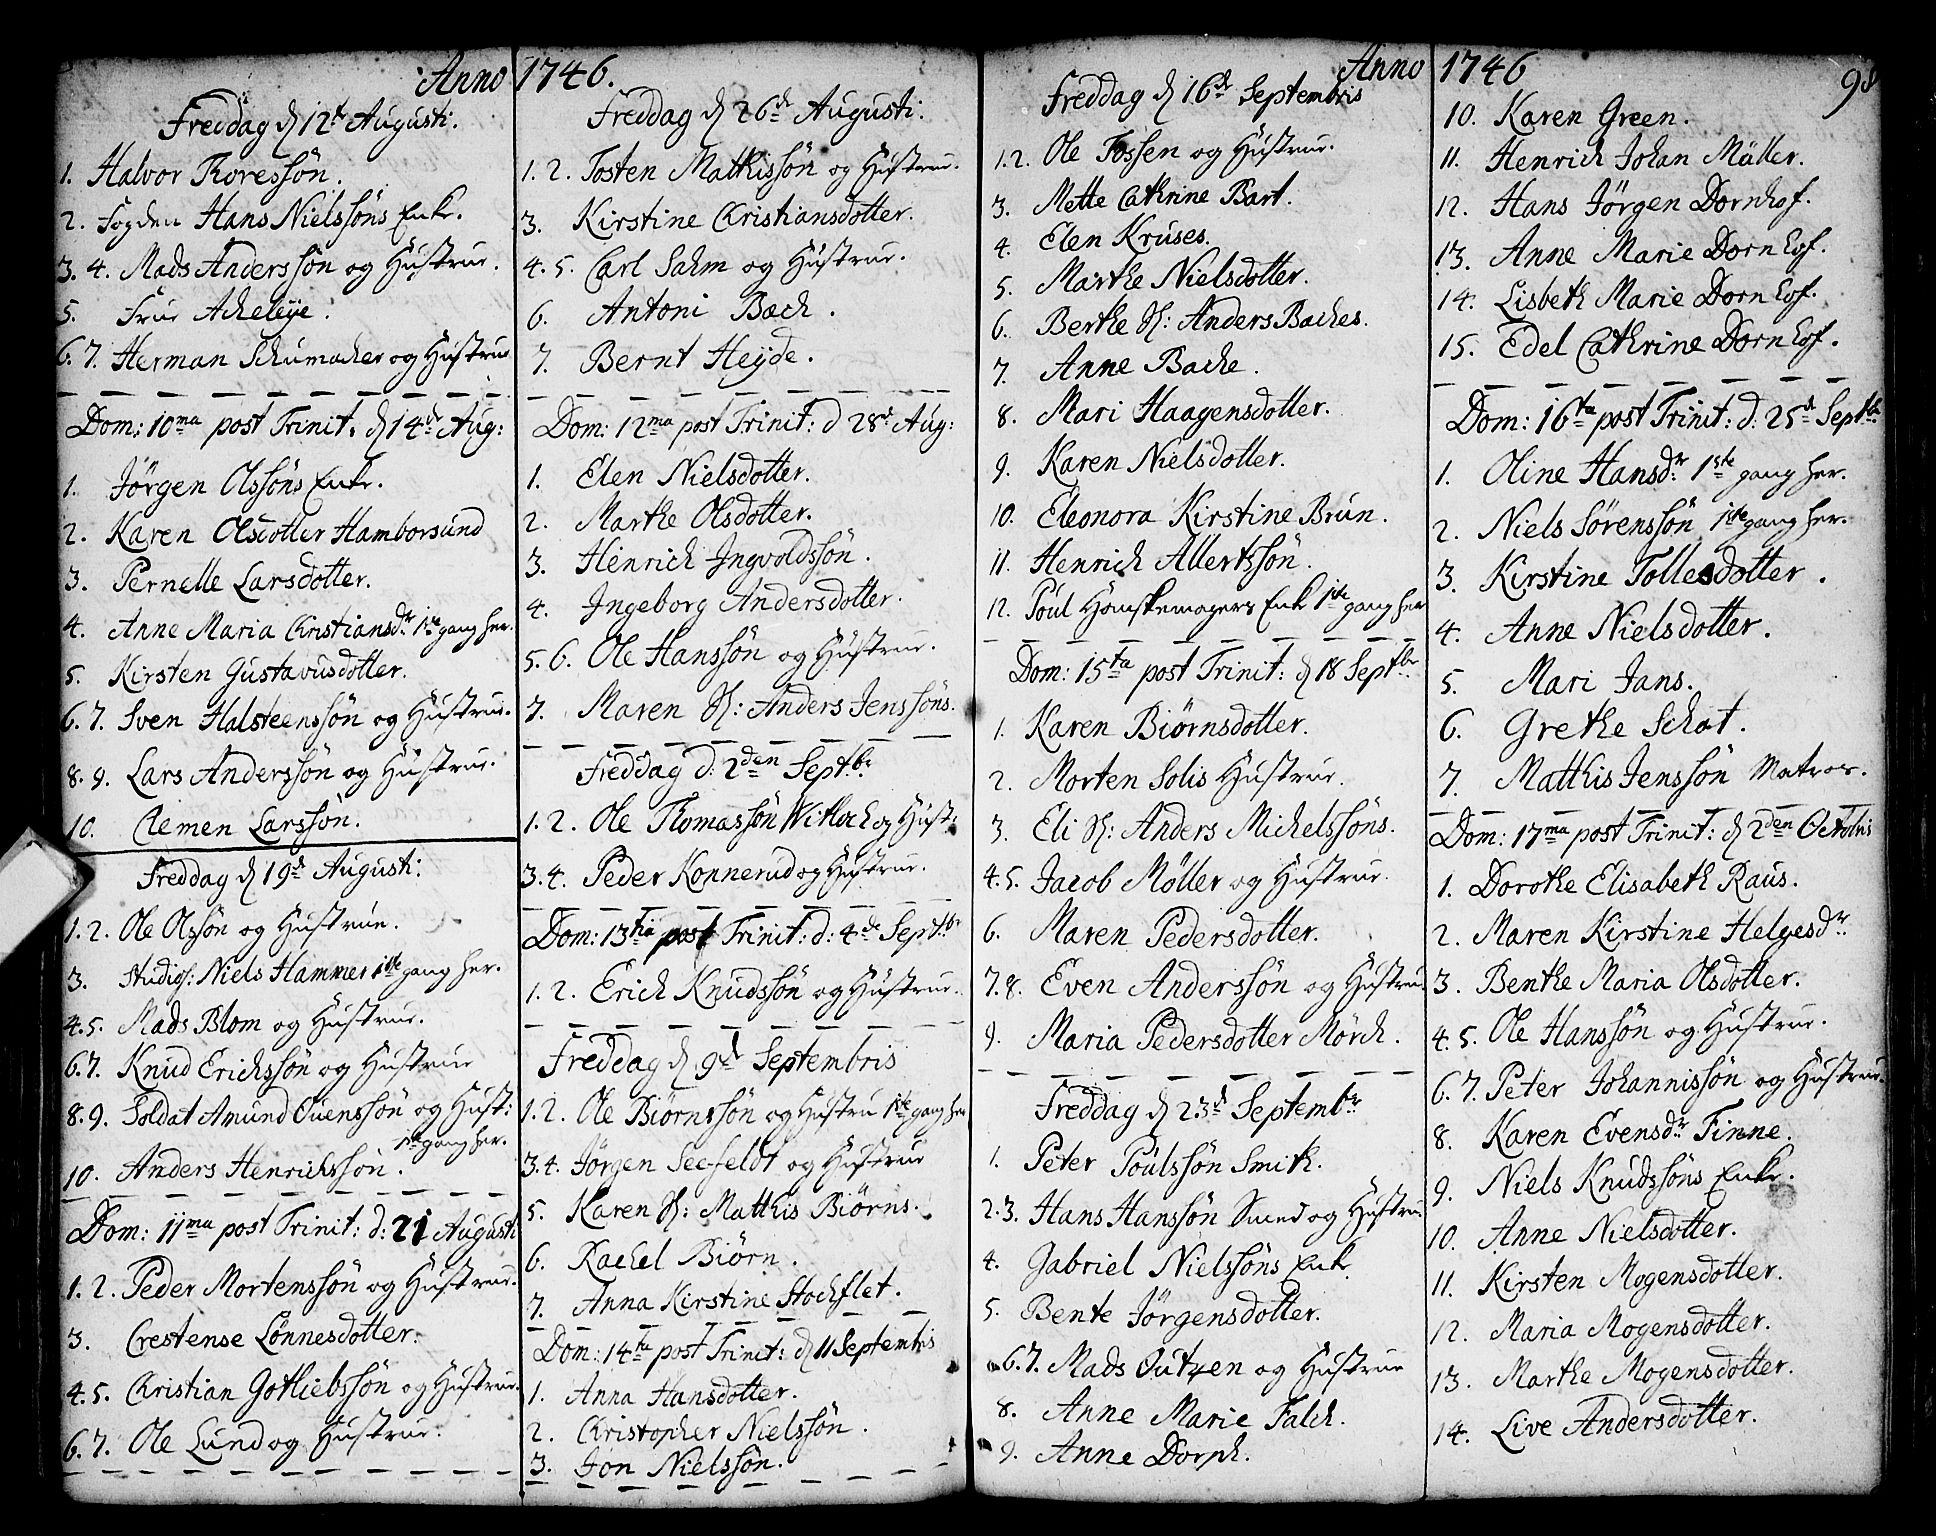 Anno 1746.
Freddag d 12te Augusti.
1. Halvor Thoressön.
2. Fogden Hans Nielssöns Enke.
3. 4. Mads Anderssön og Hustrue.
5. Frue Acheleÿe.
6. 7. Herman Schumacher og Hustrue
Dom: 10ma post Trinit. d 14de Aug:
1. Jörgen Olssöns Enke.
2. Karen Olsdotter Hamborsund
3. Pernelle Larsdotter.
4. Anne Maria Christiansdr. 1ste gang her.
5. Kirsten Gustavusdotter.
6. 7. Sven Halsteenssön og Hustrue.
8. 9. Lars Anderssön og Hustrue.
10. Clemen Larssön.
Freddag d 19de Augusti:
1. 2. Ole Olssön og Hustrue.
3. Studios: Niels Hammer 1ste gang her.
4. 5. Mads Blom og Hustrue.
6. 7. Knud Erichssön og Hustrue
8. 9. Soldat Amund Ouenssön og Hust:
1ste gang her.
10. Anders Henrichssön.
Dom: 11ma post Trinit: d: 21 Augusti
1. 2. Peder Mortenssön og Hustrue.
3. Crestense Lönnesdotter.
4. 5. Christian Gotliebssön og Hustrue.
6. 7. Ole Lund og Hustrue.
Freddag d 26de Augusti:
1. 2. Tosten Mathissön og Hustrue.
3. Kirstine Christiansdotter.
4. 5. Carl Sahm og Hustrue.
6. Antoni Bæch.
7. Bernt Heÿde.
Dom: 12ma post Trinit: d 28de Aug:
1. Elen Nielsdotter.
2. Marthe Olsdotter.
3. Henrich Ingvoldssön.
4. Ingeborg Andersdotter.
5. 6. Ole Hanssön og Hustrue.
7. Maren S: Anders Jenssöns.
Freddag d: 2den Septbr.
1. 2. Ole Thomassön Witloch og Hust:
3. 4. Peder Konnerud og Hustrue.
Dom: 13tia post Trinit: d: 4de Septbr
1. 2. Erich Knudssön og Hustrue.
Freddag d 9de Septembris
1. 2. Ole Biörnssön og Hustru 1ste gang her
3. 4. Jörgen Seefeldt og Hustrue
5. Karen S: Matthis Biörns.
6. Rachel Biörn.
7. Anna Kirstine Stochflet.
Dom: 14ta post Trinit: d 11 Septembris
1. Anna Hansdotter.
2. Christopher Nielssön.
3. Jon Nielssön.
Anno 1746
98
Freddag d 16de Septembris
1. 2. Ole Fossen og Hustrue.
3. Mette Cathrine Bart.
4. Elen Kruses.
5. Marthe Nielsdotter.
6. Berthe S: Anders Baches.
7. Anne Bache.
8. Mari Haagensdotter.
9. Karen Nielsdotter.
10. Eleonora Kirstine Brun.
11. Henrich Allertssön.
12. Poul Handskemagers Enke 1ste gang her
Dom: 15ta post Trinit: d 18 Septbr.
1. Karen Biörnsdotter.
2. Morten Solis Hustrue.
3. Eli S: Anders Michelssöns.
4. 5. Jacob Möller og Hustrue.
6. Maren Pedersdotter.
7. 8. Even Anderssön og Hustrue
9. Maria Pedersdotter Mörch.
Freddag d 23de Septembr
1. Peter Poulssön Smith.
2. 3. Hans Hanssön Smed og Hustrue.
4. Gabriel Nielssöns Enke
5. Bente Jörgensdotter.
6. 7. Mads Outzen og Hustrue
8. Anne Marie Falch.
9. Anne Dorph.
10. Karen Green.
11. Henrich Johan Müller.
12. Hans Jörgen Dornhof.
13. Anne Marie Dornhof.
14. Lisbeth Marie Dornhof.
15. Edel Cathrine Dornhof.
Dom: 16ta post Trinit: d: 25de Septbr
1. Oline Hansdr. 1ste gang her.
2. Niels Sörenssön 1ste gang her.
3. Kirstine Tollesdotter.
4. Anne Nielsdotter.
5. Mari Jans.
6. Grethe Schot.
7. Matthis Jenssön Matros.
Dom: 17ma post Trinit: d 2den Octobris
1. Dorothe Elisabeth Raus.
2. Maren Kirstine Helgesdr
3. Benthe Maria Olsdotter.
4. 5. Ole Hanssön og Hustrue.
6. 7. Peter Johannissön og Hustrue.
8. Karen Evensdr Finne.
9. Niels Knudssöns Enke.
10. Anne Nielsdotter.
11. Kirsten Mogensdotter.
12. Maria Mogensdotter.
13. Marthe Mogensdotter.
14. Live Andersdotter.